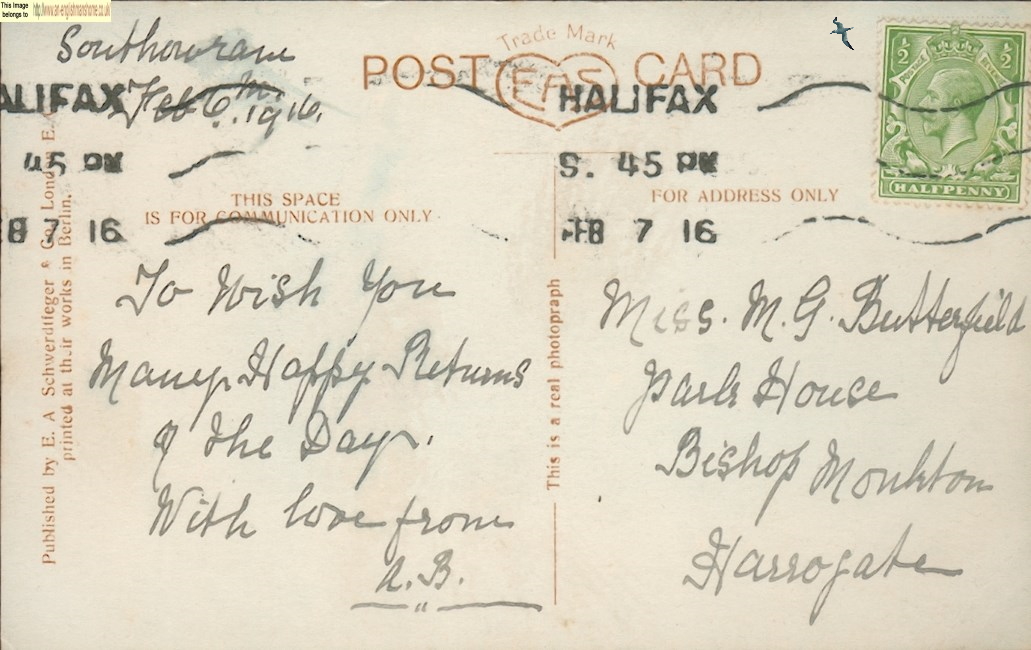 This Image
belongs to
http://www.an-englishmanshome.co.uk
Southowram
Feb 6th. 1916.
Trade Mark
POST EAS CARD
HALIFAX
45 PM
FB 7 16
HALIFAX
8. 45 PM
FB 7 16
½ ½
POSTAGE
HALFPENNY
THIS SPACE
IS FOR COMMUNICATION ONLY
FOR ADDRESS ONLY
To Wish You
Many Happy Returns
of the Day.
With love from
A.B.
Miss. M. G. Butterfield
Park House
Bishop Monkton
Harrogate
This is a real photograph
Published by E. A Schwerdtfeger & Co., London E.
printed at their works in Berlin.